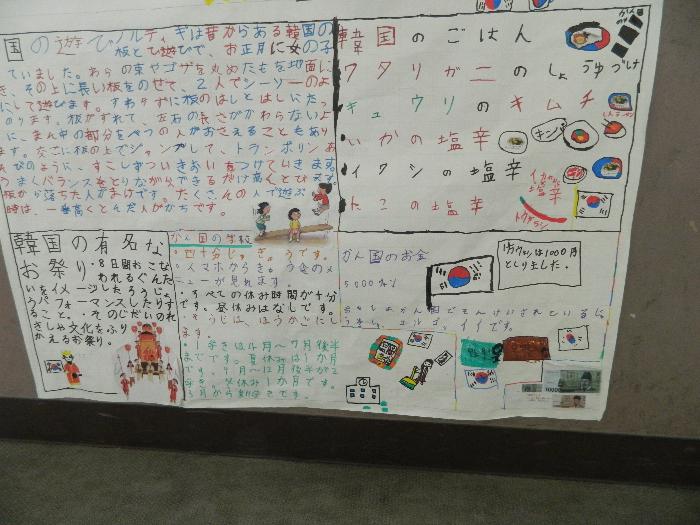 国の遊びノルティギは昔からある韓国の
板とび遊びで、お正月に女の子
ていました。わらの束やゴザを丸めたもを地面に
き、その上に長い板をのせて、2人でシーソーのよ
にして遊びます。すわらずに板のはしとはしにたっ
のります。板がずれて、左右の長さがかわらないよ
に、まん中の部分をべつの人がおさえることもあり
ます。たこに板の上でジャンプして、トランポリンあ
そびのように、すこしずついきおいをつけていきます。
うまくバランスをとりながらできるだけ高くとびます。
板から落ちた人がまけです。たくさんの人で遊ぶ
時は、一番高くとんだ人がかちです。
韓国のごはん
ワタリガニのしょうゆづけ
キュウリのキムチ
いかの塩辛
イワシの塩辛
たこの塩辛
キンパ
トウガラシ
韓国の有名な
お祭り・8日間おこな
われるぐんた
いをイメージしたうんじょ
うパフォーマンスしたりす
ること。そのじだいのれ
きしや文化をふり
かえるお祭り。
かん国の学校
・四十分じゅぎょうです。
ニューが見れます。
・すべての休み時間が十分
です。昼休みはなしです。
・そうじは、ほうかごにし
ます。
までです。夏休みは1か月
です。9月〜12月後半が2
学き。冬休み1か月です。
3月から新学きです。
かん国のお金
1万ウォンは1000円
としりました。
10000